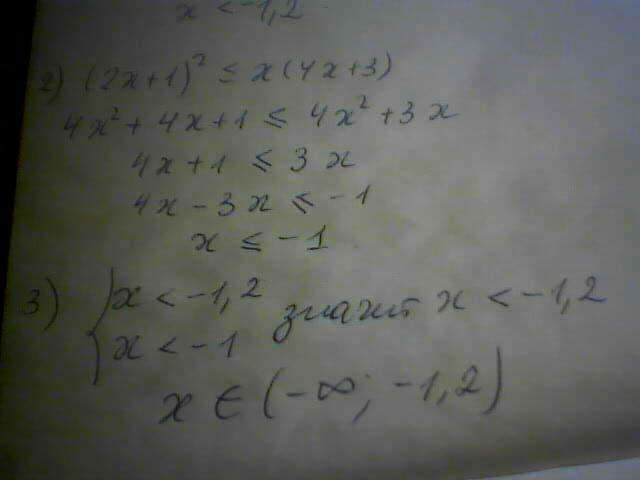 x < -1,2
2) (2x+1)² ≤ x(4x+3)
4x² + 4x+1 ≤ 4x² +3x
4x+1 ≤ 3x
4x-3x ≤ -1
x ≤ -1
3) { x < -1,2 значит x < -1,2
x < -1
x ∈ (-∞; -1,2)